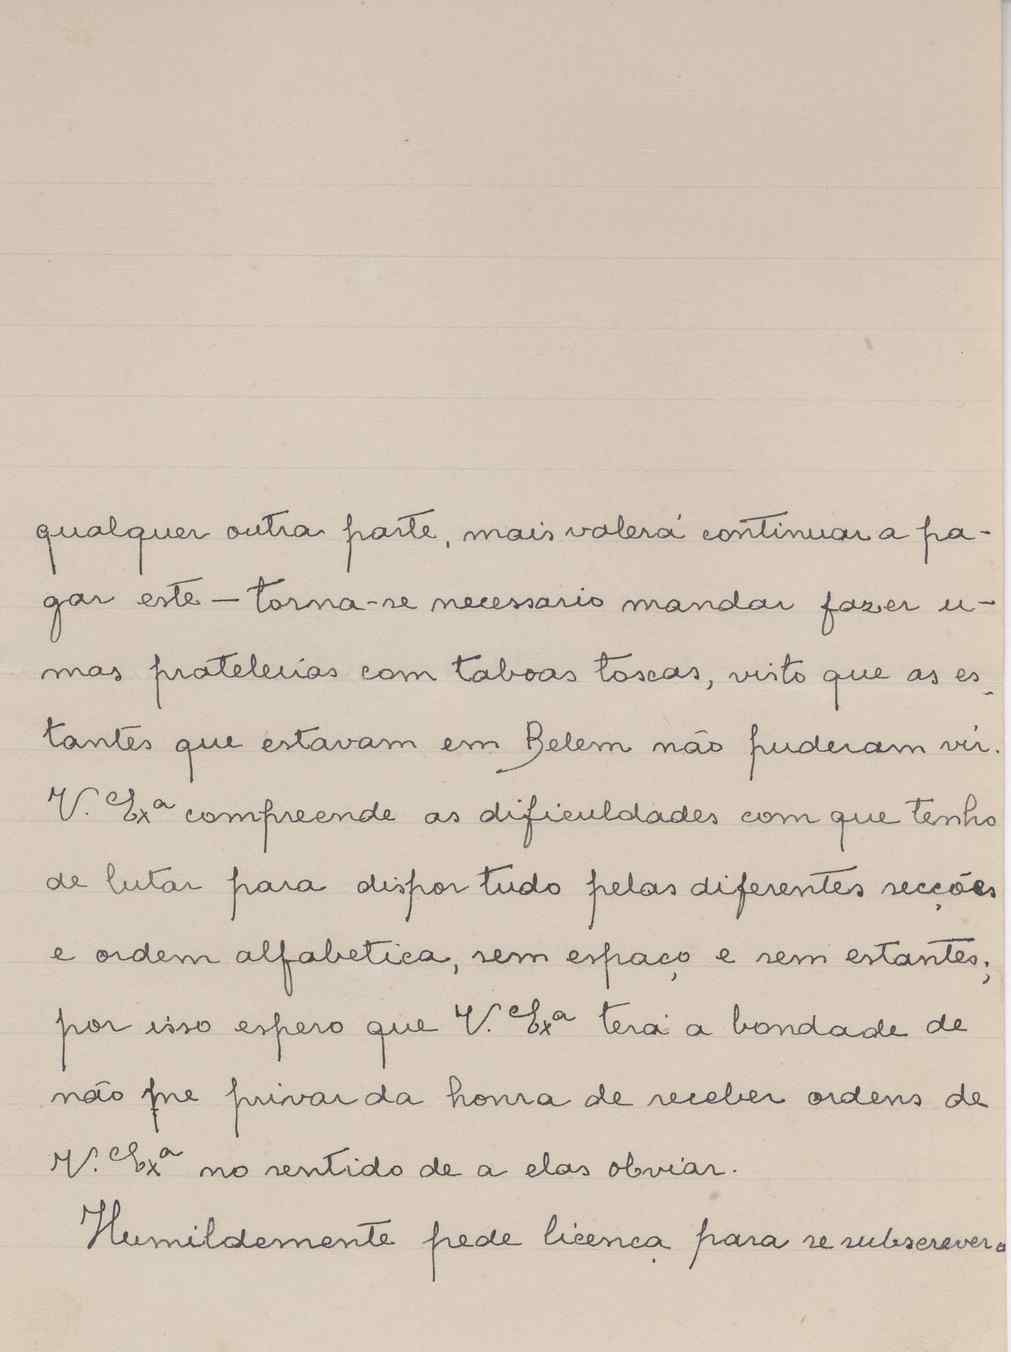 qualquer outra parte, mais valerá continuar a pa-
gar este — torna-se necessario mandar fazer u-
mas pratelerias com taboas toscas, visto que as es-
tantes que estavam em Belem não puderam vir.
V. Exª compreende as dificuldades com que tenho
de lutar para dispor tudo pelas diferentes secções
e ordem alfabetica, sem espaço e sem estantes;
por isso espero que V. Exª terá a bondade de
não me privar da honra de receber ordens de
V. Exª no sentido de a elas obviar.
Humildemente pede licença para se subscrever a